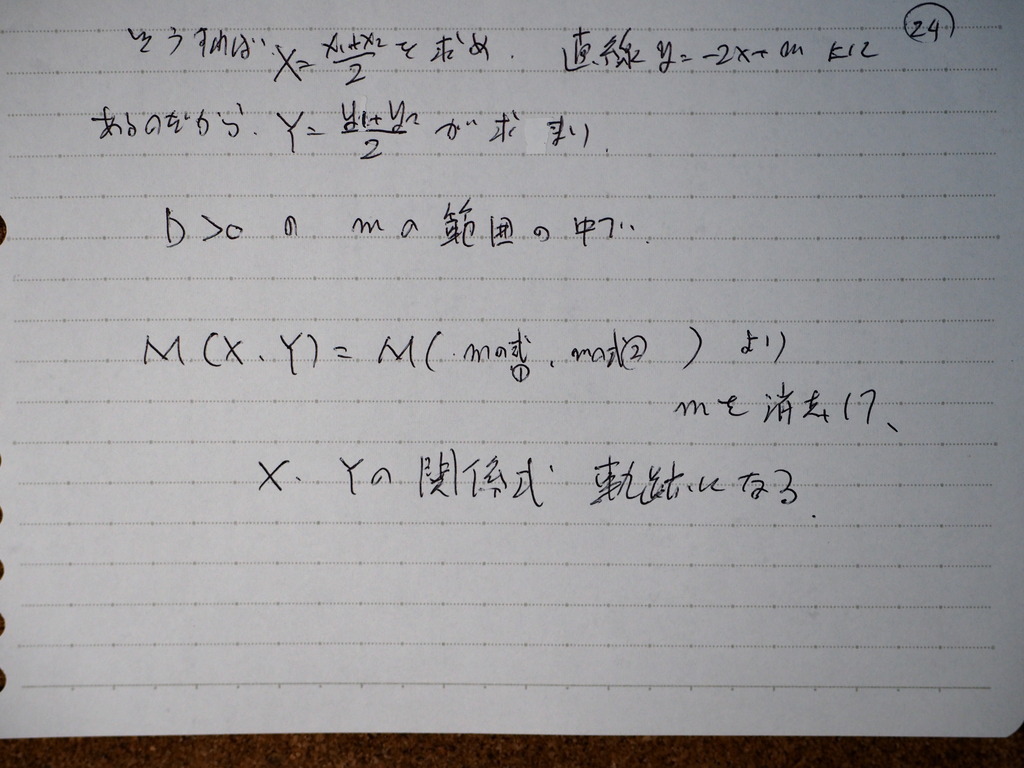 24
そうすれば X=(x₁+x₂)/2 を求め. 直線 y=-2x+m 上に
あるのだから. Y=(y₁+y₂)/2 が求まり.
D>0 の mの範囲の中で.
M(X、Y)=M(mの式①、mの式②) より
mを消去して、
X、Yの関係式が軌跡になる.